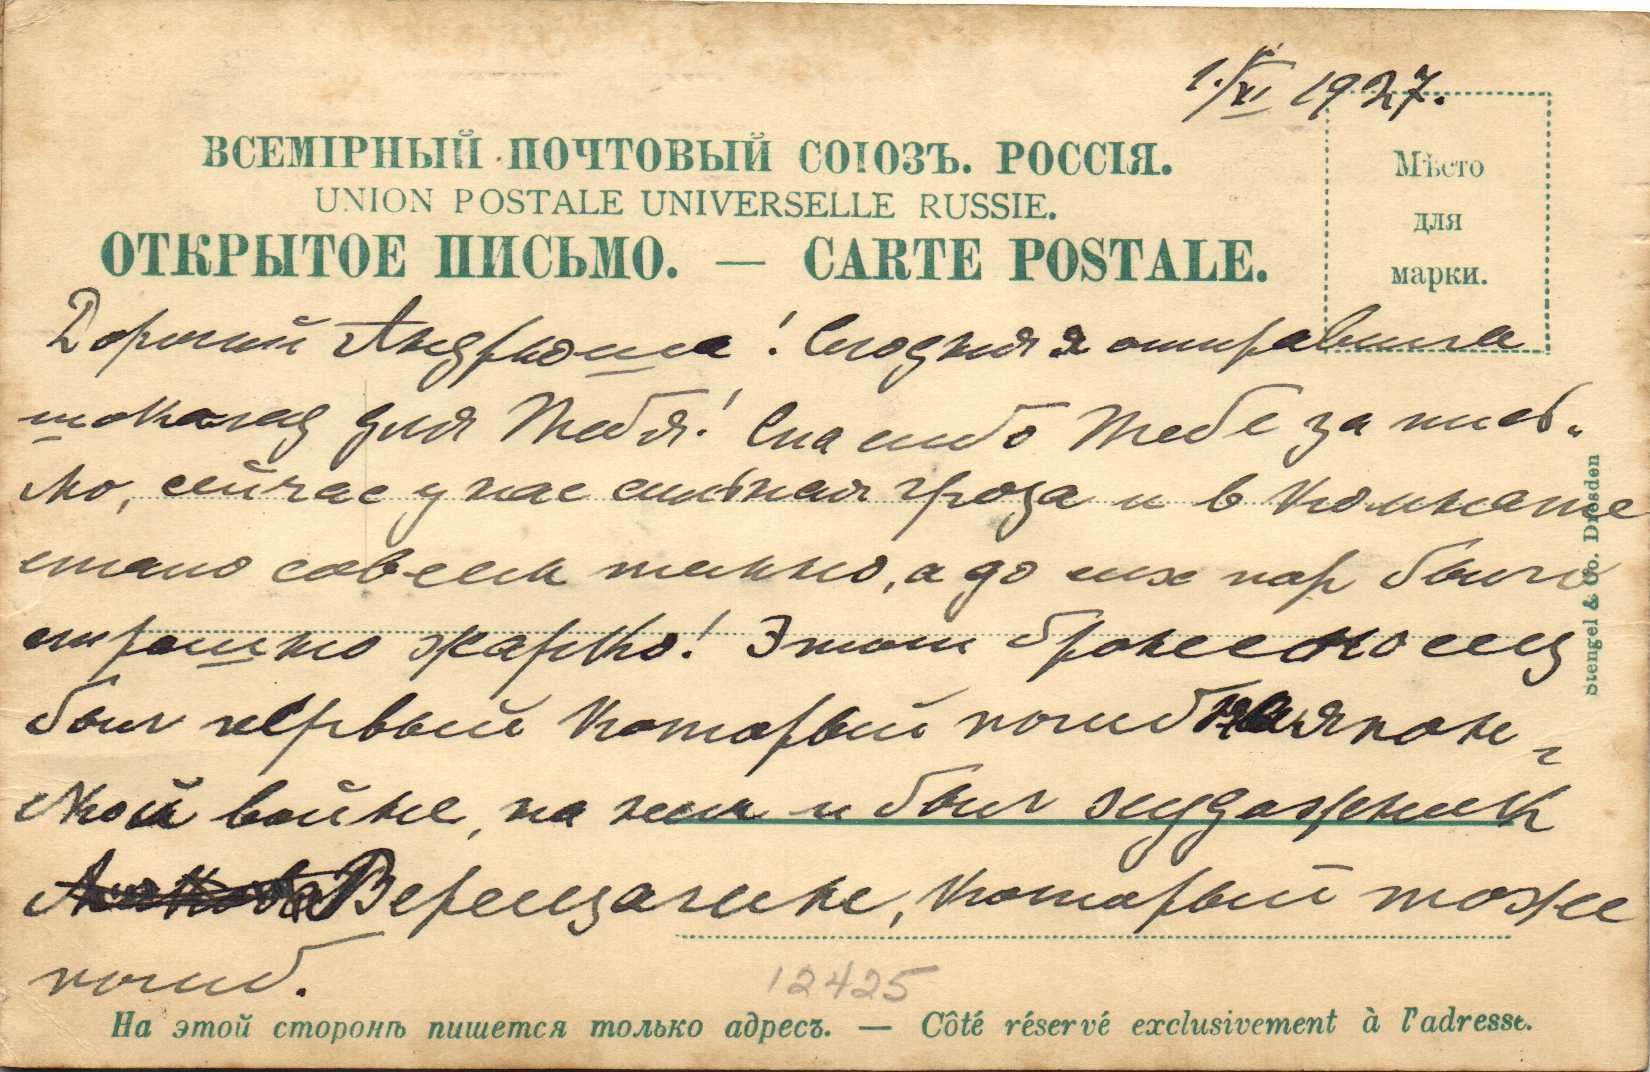 1./VI 1927.
ВСЕМІРНЫЙ ПОЧТОВЫЙ СОЮЗЪ. РОССІЯ.
UNION POSTALE UNIVERSELLE RUSSIE.
ОТКРЫТОЕ ПИСЬМО. — CARTE POSTALE.
Мѣсто
для
марки.
Дорогой Андрюша! Сегодня я отправила
шоколад для Тебя! Спасибо Тебе за пись-
мо, сейчас у нас сильная гроза и в комнате
стало совсем темно, а до сих пор было
страшно жарко! Этот броненосец
был первый который погиб на япон-
ской войне, на нем и был художник
Верещагин, который тоже
погиб.
12425
На этой сторонѣ пишется только адресъ. — Côté réservé exclusivement à l'adresse.
Stengel & Co. Dresden